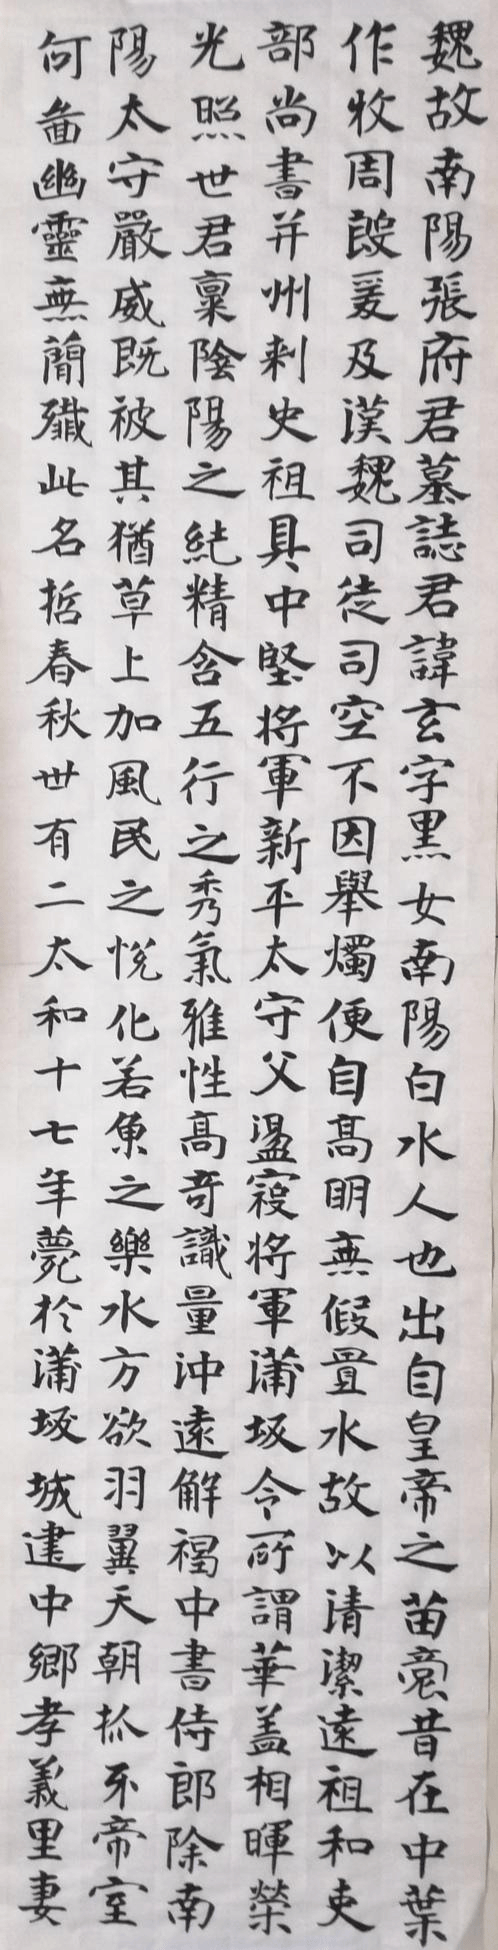 魏故南陽張府君墓誌君諱玄字黑女南陽白水人也出自皇帝之苗裔昔在中葉
作牧周殷爰及漢魏司徒司空不因舉燭便自高明無假置水故以清潔遠祖和吏
部尚書并州刺史祖具中堅將軍新平太守父盪寇將軍蒲坂令所謂華蓋相暉榮
光照世君稟陰陽之純精含五行之秀氣雅性高奇識量沖遠解褐中書侍郎除南
陽太守嚴威既被其猶草上加風民之悅化若魚之樂水方欲羽翼天朝抓牙帝室
何啚幽靈無簡殲此名哲春秋卅有二太和十七年薨於蒲坂城建中鄉孝義里妻